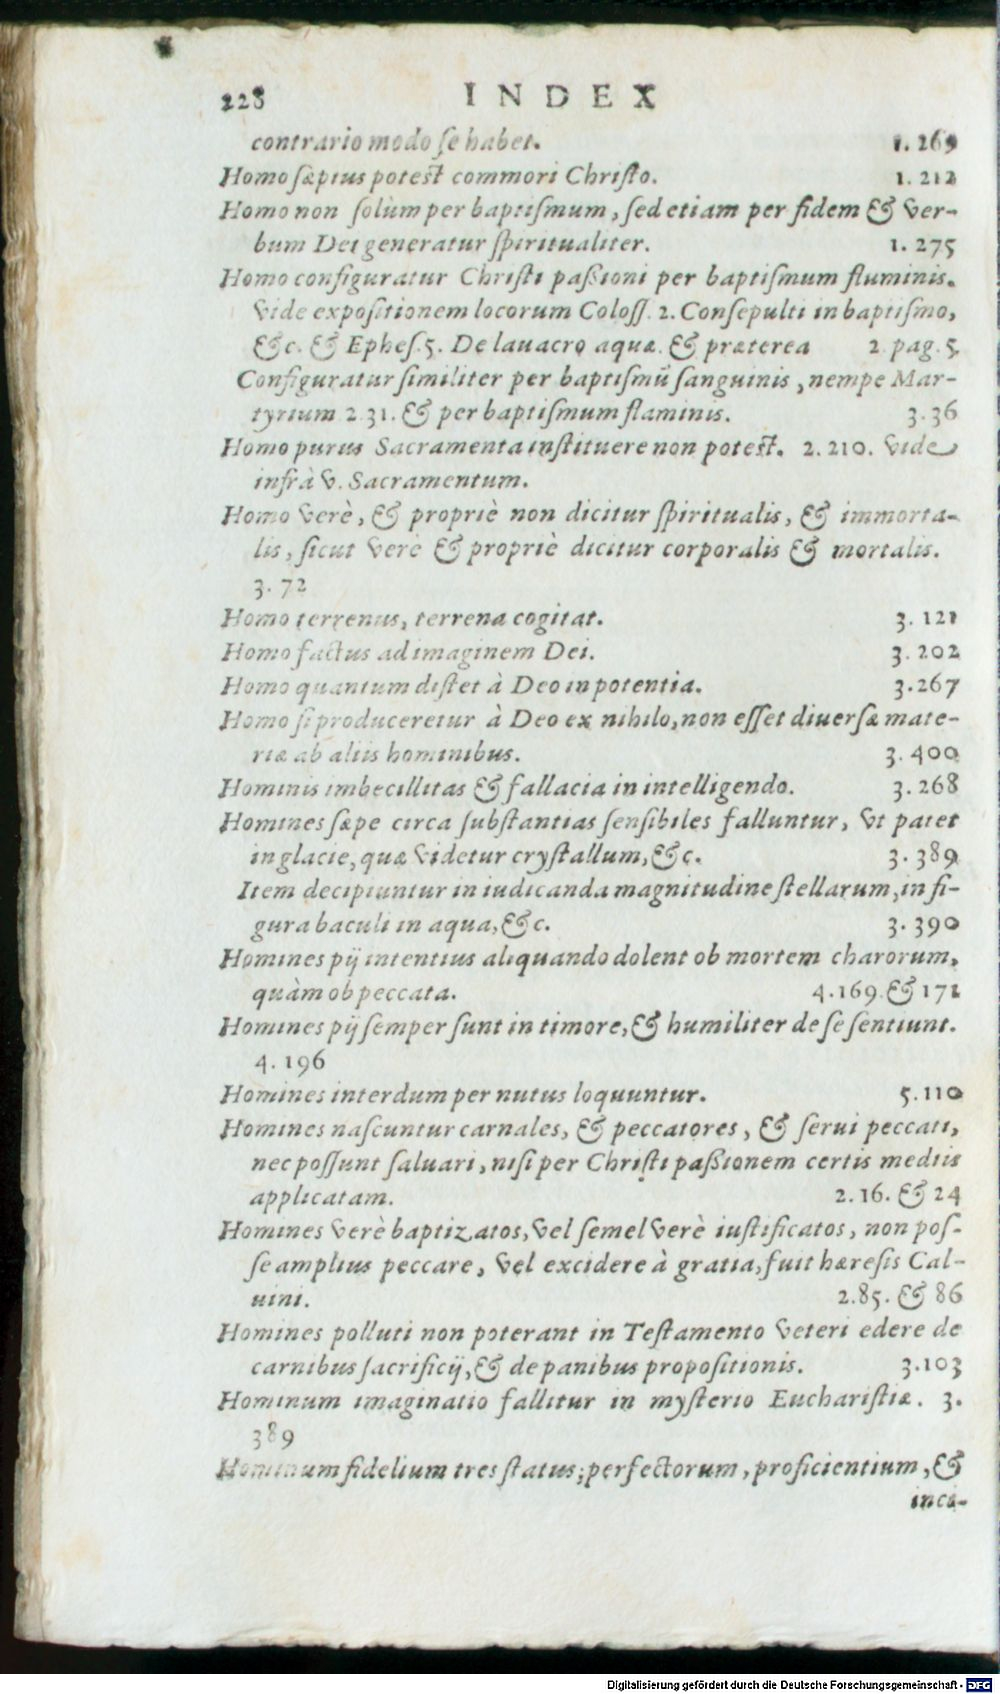 228 INDEX
contrario modo se habet. 1. 269
Homo sæpius potest commori Christo. 1. 212
Homo non solùm per baptismum, sed etiam per fidem & ver-
bum Dei generatur spiritualiter. 1. 275
Homo configuratur Christi passioni per baptismum fluminis.
Vide expositionem locorum Coloss. 2. Consepulti in baptismo,
&c. & Ephes. 5. De lauacro aquæ. & præterea 2. pag. 5.
Configuratur similiter per baptismū sanguinis, nempe Mar-
tyrium 2. 31. & per baptismum flaminis. 3. 36
Homo purus Sacramenta instituere non potest. 2. 210. vide
infrà v. Sacramentum.
Homo verè, & propriè non dicitur spiritualis, & immorta-
lis, sicut verè & propriè dicitur corporalis & mortalis.
3. 72
Homo terrenus, terrena cogitat. 3. 121
Homo factus ad imaginem Dei. 3. 202
Homo quantum distet à Deo in potentia. 3. 267
Homo si produceretur à Deo ex nihilo, non esset diuersæ mate-
riæ ab aliis hominibus. 3. 400
Hominis imbecillitas & fallacia in intelligendo. 3. 268
Homines sæpe circa substantias sensibiles falluntur, vt patet
in glacie, quæ videtur crystallum, &c. 3. 389
Item decipiuntur in iudicanda magnitudine stellarum, in fi-
gura baculi in aqua, &c. 3. 390
Homines pij intentius aliquando dolent ob mortem charorum,
quàm ob peccata. 4. 169. & 171
Homines pij semper sunt in timore, & humiliter de se sentiunt.
4. 196
Homines interdum per nutus loquuntur. 5. 110
Homines nascuntur carnales, & peccatores, & serui peccati,
nec possunt saluari, nisi per Christi passionem certis mediis
applicatam. 2. 16. & 24
Homines verè baptizatos, vel semel verè iustificatos, non pos-
se amplius peccare, vel excidere à gratia, fuit hæresis Cal-
uini. 2. 85. & 86
Homines polluti non poterant in Testamento veteri edere de
carnibus sacrificij, & de panibus propositionis. 3. 103
Hominum imaginatio fallitur in mysterio Eucharistiæ. 3.
389
Hominum fidelium tres status; perfectorum, proficientium, &
inci-
Digitalisierung gefördert durch die Deutsche Forschungsgemeinschaft - DFG